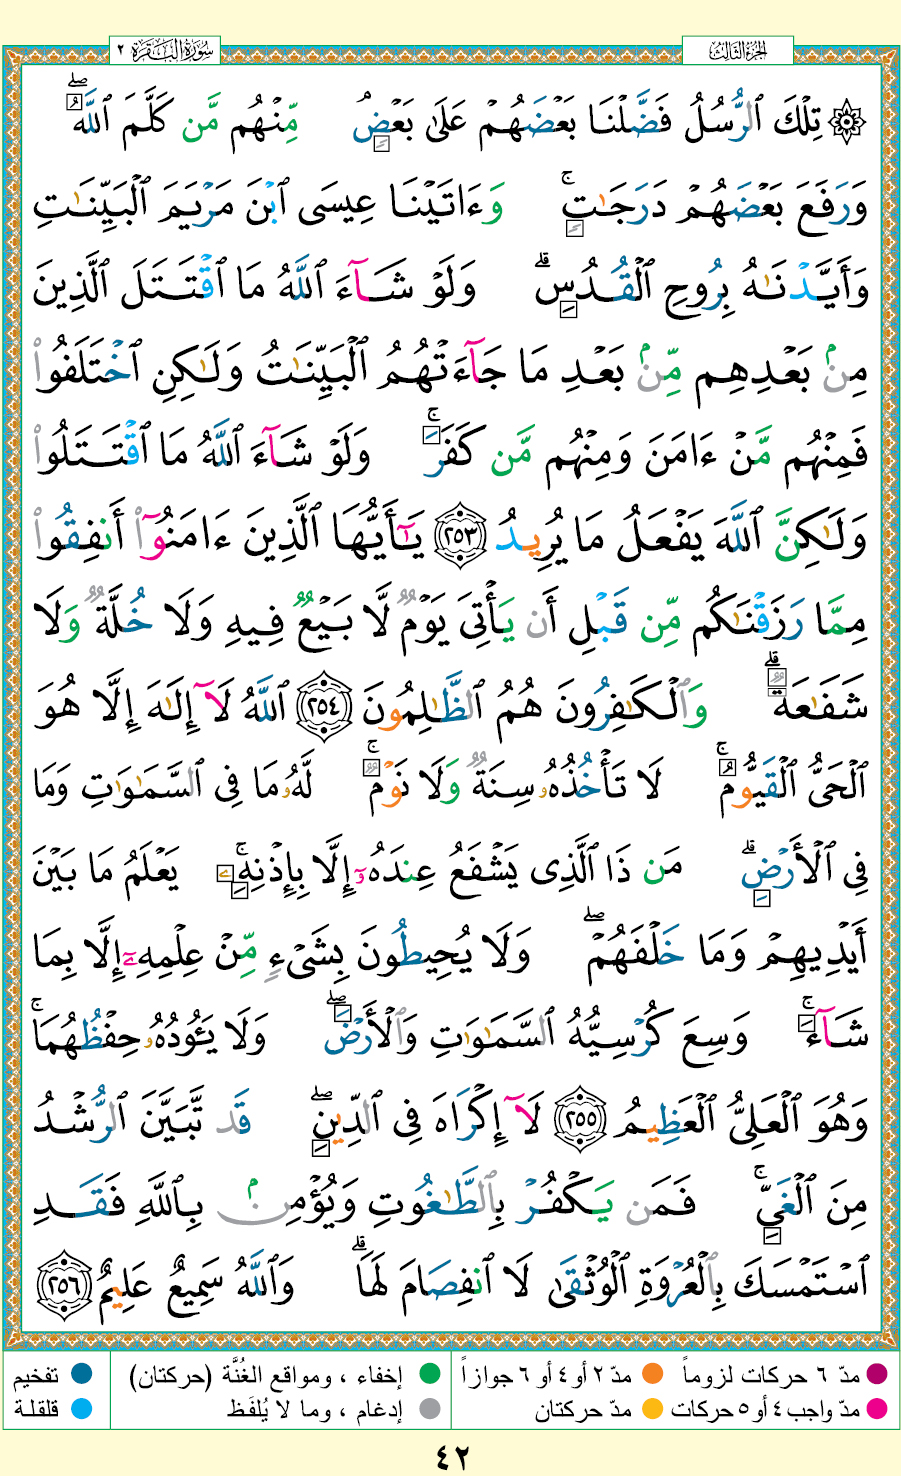 الجزء الثالث
سورة البقرة ٢
۞ تِلْكَ ٱلرُّسُلُ فَضَّلْنَا بَعْضَهُمْ عَلَىٰ بَعْضٍۘ مِّنْهُم مَّن كَلَّمَ ٱللَّهُۖ
وَرَفَعَ بَعْضَهُمْ دَرَجَـٰتٍۚ وَءَاتَيْنَا عِيسَى ٱبْنَ مَرْيَمَ ٱلْبَيِّنَـٰتِ
وَأَيَّدْنَـٰهُ بِرُوحِ ٱلْقُدُسِۗ وَلَوْ شَآءَ ٱللَّهُ مَا ٱقْتَتَلَ ٱلَّذِينَ
مِنۢ بَعْدِهِم مِّنۢ بَعْدِ مَا جَآءَتْهُمُ ٱلْبَيِّنَـٰتُ وَلَـٰكِنِ ٱخْتَلَفُوا۟
فَمِنْهُم مَّنْ ءَامَنَ وَمِنْهُم مَّن كَفَرَۚ وَلَوْ شَآءَ ٱللَّهُ مَا ٱقْتَتَلُوا۟
وَلَـٰكِنَّ ٱللَّهَ يَفْعَلُ مَا يُرِيدُ ٢٥٣ يَـٰٓأَيُّهَا ٱلَّذِينَ ءَامَنُوٓا۟ أَنفِقُوا۟
مِمَّا رَزَقْنَـٰكُم مِّن قَبْلِ أَن يَأْتِىَ يَوْمٌ لَّا بَيْعٌ فِيهِ وَلَا خُلَّةٌ وَلَا
شَفَـٰعَةٌۗ وَٱلْكَـٰفِرُونَ هُمُ ٱلظَّـٰلِمُونَ ٢٥٤ ٱللَّهُ لَآ إِلَـٰهَ إِلَّا هُوَ
ٱلْحَىُّ ٱلْقَيُّومُۚ لَا تَأْخُذُهُۥ سِنَةٌ وَلَا نَوْمٌۚ لَّهُۥ مَا فِى ٱلسَّمَـٰوَٰتِ وَمَا
فِى ٱلْأَرْضِۗ مَن ذَا ٱلَّذِى يَشْفَعُ عِندَهُۥٓ إِلَّا بِإِذْنِهِۦۚ يَعْلَمُ مَا بَيْنَ
أَيْدِيهِمْ وَمَا خَلْفَهُمْۖ وَلَا يُحِيطُونَ بِشَىْءٍ مِّنْ عِلْمِهِۦٓ إِلَّا بِمَا
شَآءَۚ وَسِعَ كُرْسِيُّهُ ٱلسَّمَـٰوَٰتِ وَٱلْأَرْضَۖ وَلَا يَـُٔودُهُۥ حِفْظُهُمَاۚ
وَهُوَ ٱلْعَلِىُّ ٱلْعَظِيمُ ٢٥٥ لَآ إِكْرَاهَ فِى ٱلدِّينِۖ قَد تَّبَيَّنَ ٱلرُّشْدُ
مِنَ ٱلْغَىِّۚ فَمَن يَكْفُرْ بِٱلطَّـٰغُوتِ وَيُؤْمِنۢ بِٱللَّهِ فَقَدِ
ٱسْتَمْسَكَ بِٱلْعُرْوَةِ ٱلْوُثْقَىٰ لَا ٱنفِصَامَ لَهَاۗ وَٱللَّهُ سَمِيعٌ عَلِيمٌ ٢٥٦
مدّ ٦ حركات لزوماً
مدّ ٢ أو ٤ أو ٦ جوازاً
إخفاء ، ومواقع الغُنَّة (حركتان)
تفخيم
مدّ واجب ٤ أو ٥ حركات
مدّ حركتان
إدغام ، وما لا يُلفَظ
قلقلة
٤٢